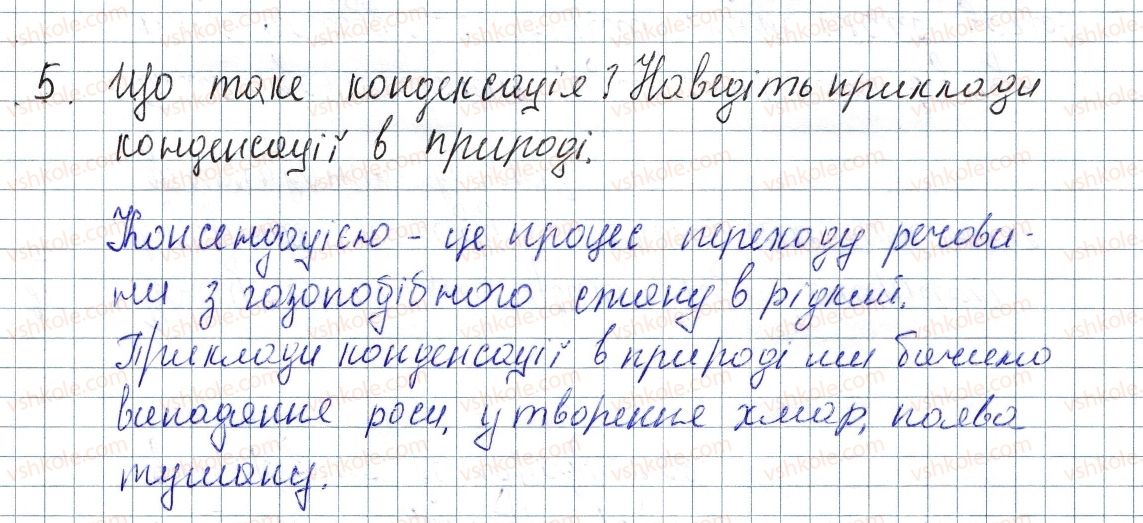 5. Що таке конденсація? Наведіть приклади
конденсації в природі.
Консендацією - це процес переходу речови-
ни з газоподібного стану в рідкий.
Приклади конденсації в природі ми бачимо
випадяння роси, утворення хмар, поява
туману.